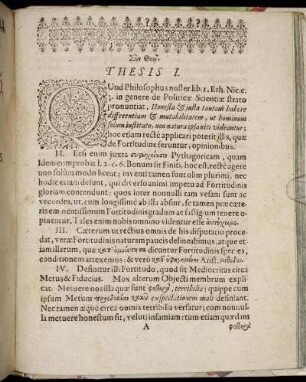 Σὺν Θεῷ.
THESIS I.
QUod Philosophus noster lib. 1. Eth. Nic. c.
3. in genere de Politicæ Scientiæ strato
pronuntiat, Honesta & justa tantam habere
differentiam & mutabilitatem, ut hominum
solum instituto, non natura ipsa niti videantur;
hoc etiam recte applicari poterit illis, quæ
de Fortitudine feruntur, opinionibus.
II. Etsi enim juxta Pythagoricam, quam
Idem comprobat l. 2. c. 6. Bonum sit Finiti, hocest recte agere
uno solum modo liceat; inventi tamen sunt olim plurimi, nec
hodie etiam desunt, qui diverso animi impetu ad Fortitudinis
gloriam contendunt: quos inter nonnulli tam vesani sunt ac
vecordes, ut, cum longissime ab illa absint, se tamen præ cæ-
teris eminentissimum Fortitudinis gradum at fastigium tenere o-
pinentur, Tales enim nobis omnino videntur esse
III. Cæterum ut rectius omnis de his disputatio proce-
dat, veræ Fortitudinis naturam paucis delineabimus, atque
etiam illarum, quæ dicuntur Fortitudinis species,
conditionem attexemus: & vero Arist.
IV. Definitur illi Fortitudo, quod sit Mediocritas circa
Metus & Fiducias. Mox alterum Objecti membrum expli-
cat. Metuere nos illa quæ sunt φοβερὰ, terribilia; quippe cum
ipsum Metum προσδοκίαν κακοῦ exspectationem mali definiant.
Nec tamen atque circa omnia terribilia versatur; cum nonnul-
la metuere honestum sit, veluti infamiam: tum etiam quædam
A φοβερὰ